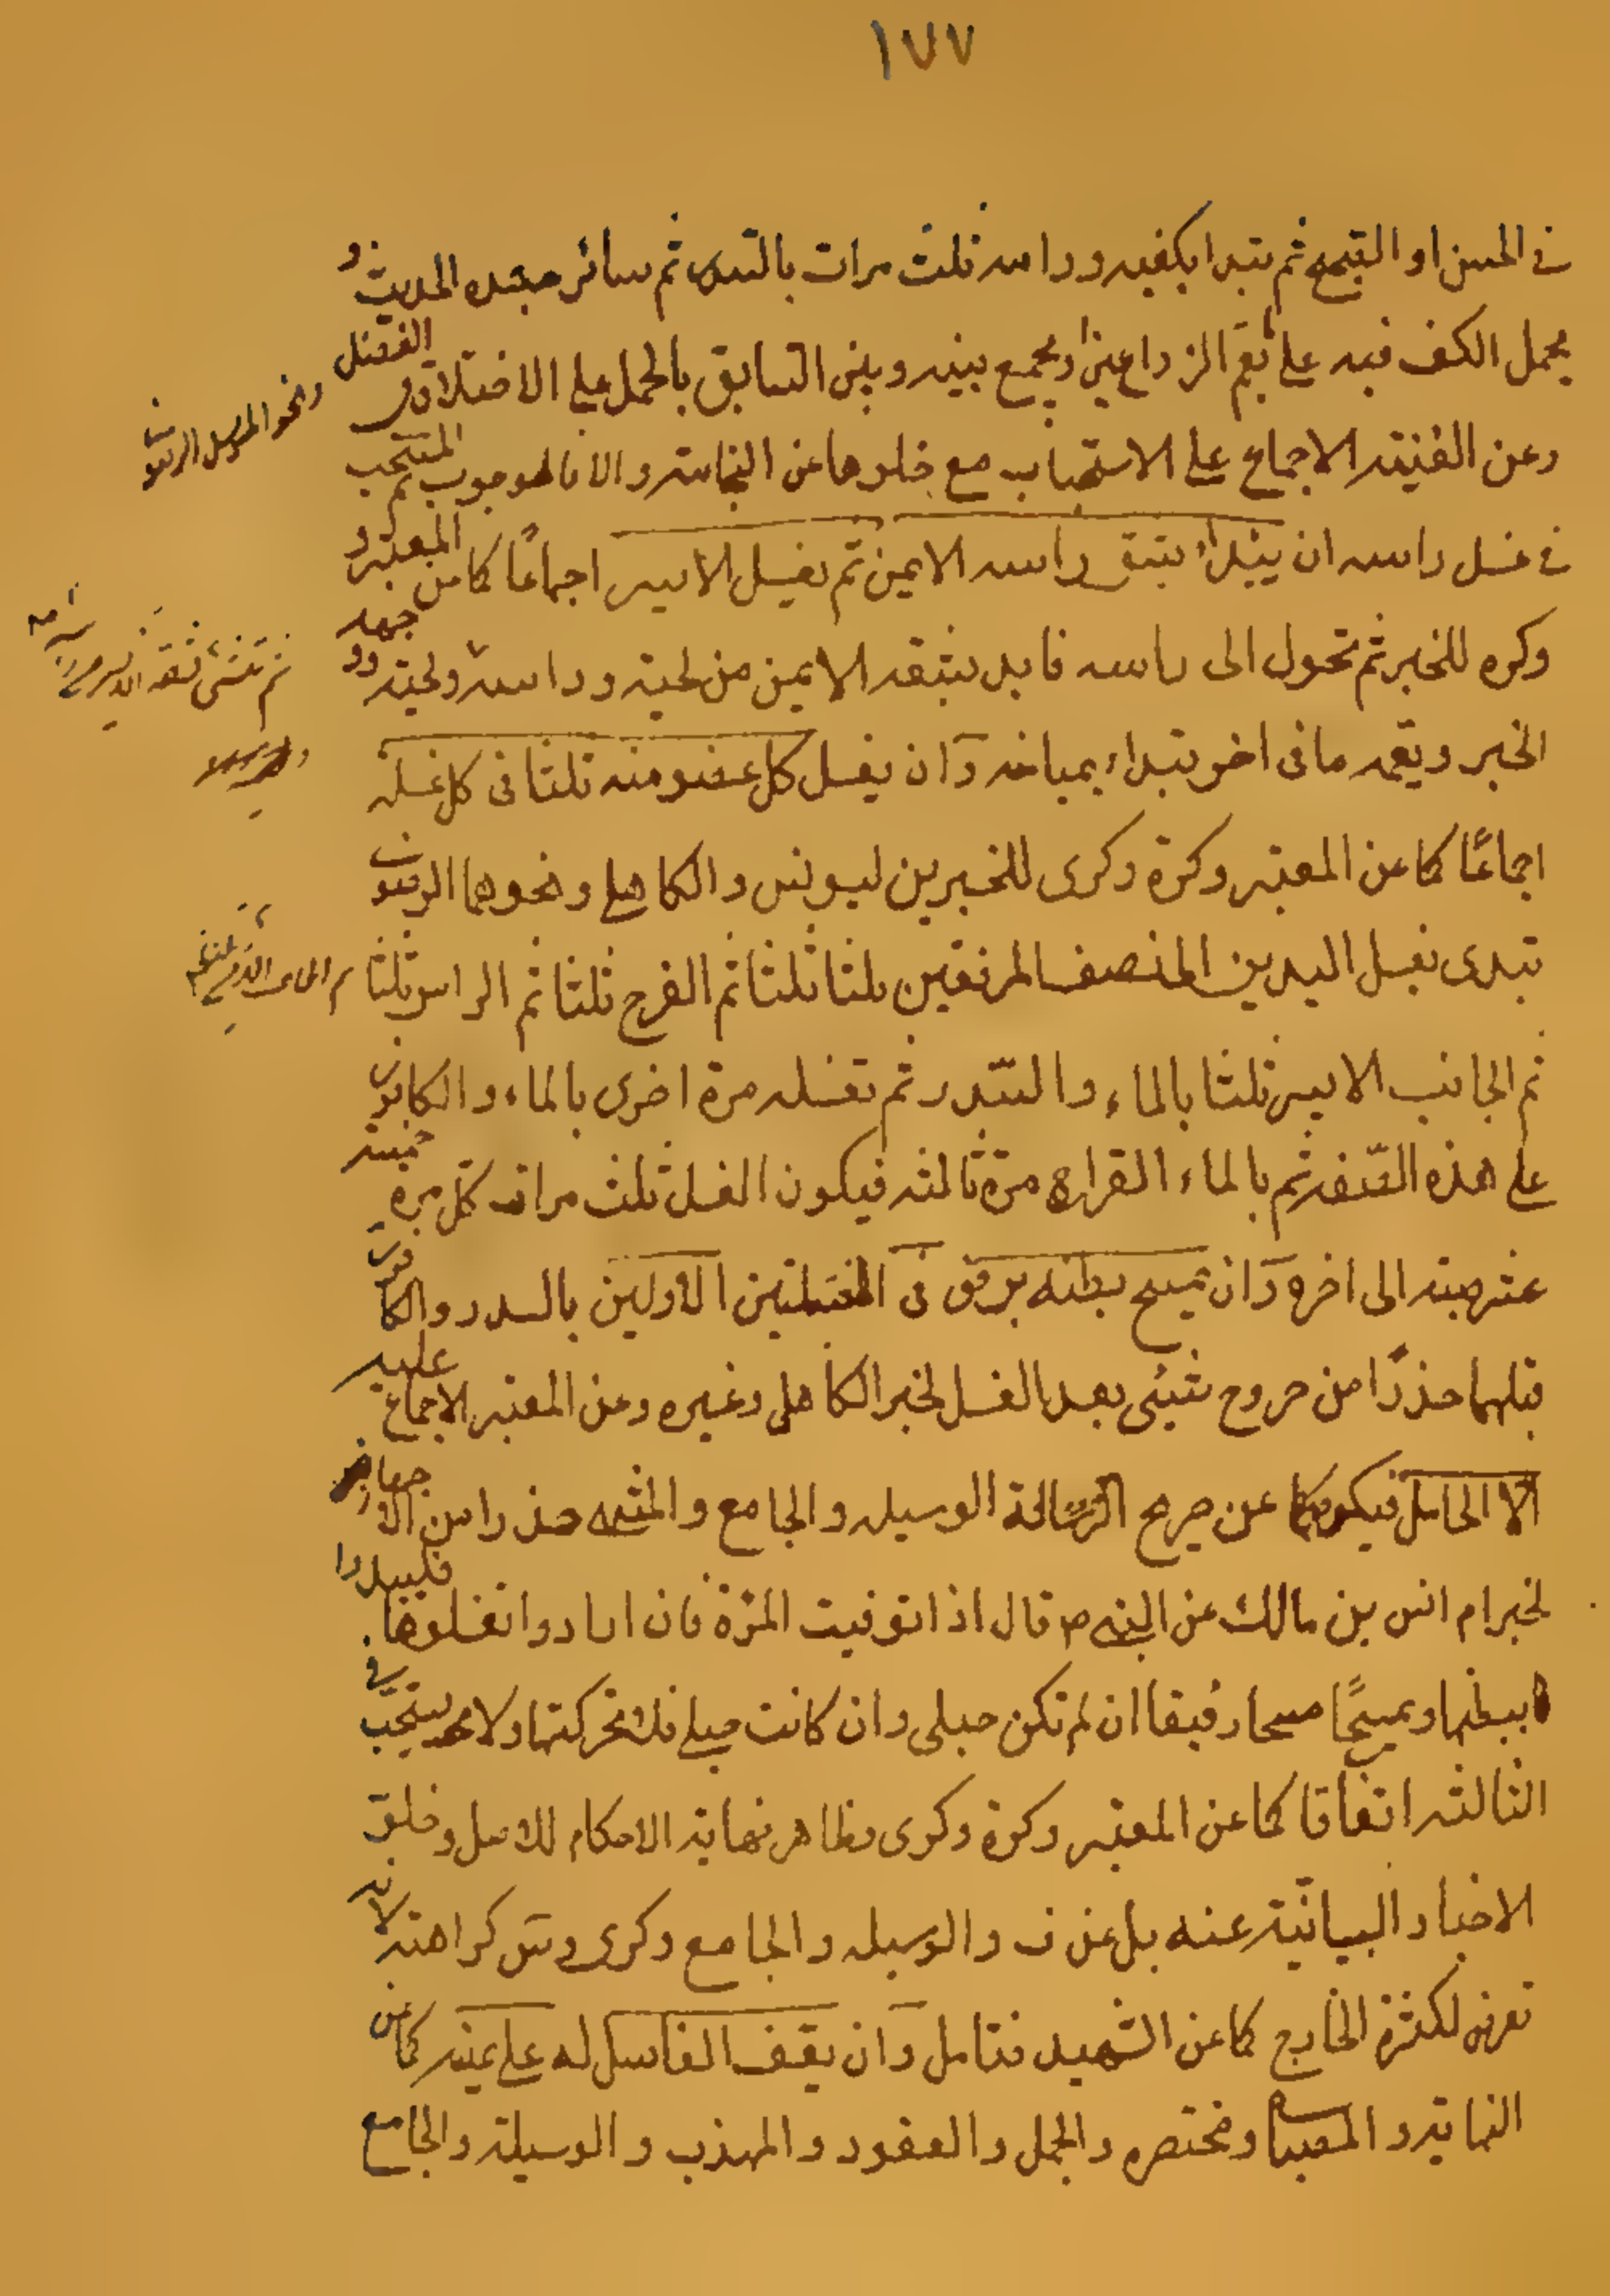 ١٧٧
في الحسن او القبيح ثم تبدا بكفيه وراسه ثلث مرات بالسدر ثم سائر جسده الحديث و
يحمل الكف فيه على نعم الذراعين او يجمع بينه وبين السابق بالحمل على الافضل والفضل
ونحو المرسل الرضوى
وعن الغنيته الاجماع على الاستحباب مع خلوها عن النجاسته والا فالوجوب ثم المستحب
في غسل راسه ان يبدا بشق راسه الايمن ثم يغسل الايسر اجماعًا كما عن المعتبر و
وكره للخبر ثم تحول الى راسه فابدء بشقه الايمن من لحيته وراسه ولحيته ووجهه
ثم تثنى بشقه الايسر من راسه
الخبر ويعمه ما في اخر تبداء بميامنه وان يغسل كل عضو منه ثلثا في كل غسله
اجماعًا كما عن المعتبر وكرة وكرى للخبرين ليونس والكاهلي ونحوهما الرضوى
تبدى بغسل اليدين الى نصف المرفقين ثلثا ثلثا ثم الفرج ثلثا ثم الراس ثلثا
ثم الجانب الايمن ثلثا
ثم الجانب الايسر ثلثا بالماء والسدر ثم تغسله مرة اخرى بالماء والكافور
على هذه الصفه ثم بالماء القراح مرة ثالثه فيكون الغسل ثلث مرات كل مرة خمسة
عشر صبته الى اخره وان يمسح بطنه برفق في الغسلتين الاولين بالسدر والكافور
قبلهما حذرًا من خروج شيئ بعد الغسل لخبر الكاهلي وغيره وعن المعتبر الاجماع عليه
الا الحامل فيكره كما عن صريح الوسيله والجامع والمنتهى حذرا من الاجهاض
لخبر ام انس بن مالك عن النبى ص قال اذا توفيت المرءة فان ارادوا ان يغسلوها فليبدءوا
ببطنها ويمسح مسحا رفيقا ان لم تكن حبلى وان كانت حبلى فلا تحركنها ولا يستحب في
الثالثه اتفاقا كما عن المعتبر وكرة وكرى وظاهر نهاية الاحكام للاصل وخلو
الاخبار البيانية عنه بل عن ف والوسيله والجامع وكرى وس كراهته لانه
تعرض لكثرة الخارج كما عن الشهيد فتامل وان يقف الغاسل له على يمينه كما عن
النهاية والمصباح ومختصره والجمل والعقود والمهذب والوسيلة والجامع